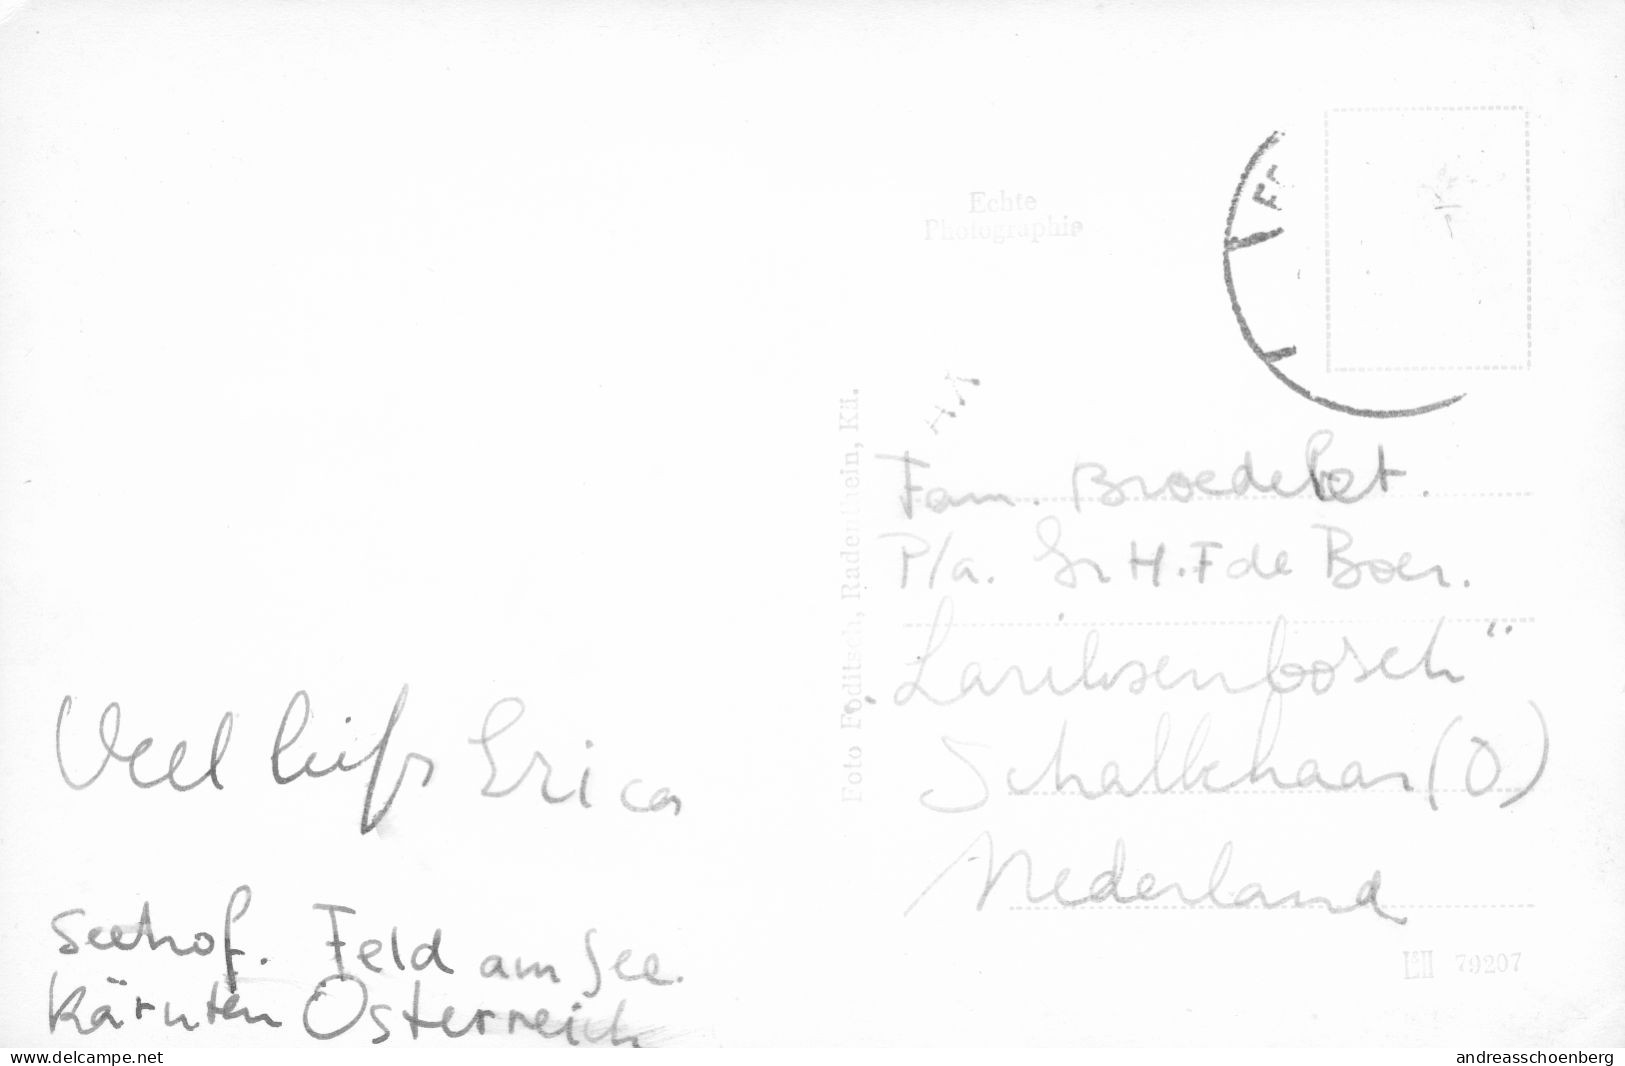 Veel liefs Erica
Seehof. Feld am See.
Kärnten Österreich
Echte
Photographie
Foto Foditsch, Radenthein, Kä.
Fam. Broedelet.
P/a. H.F de Boer.
„Lariksenbosch"
Schalkhaar (O)
Nederland
79207
www.delcampe.net
andreasschoenberg